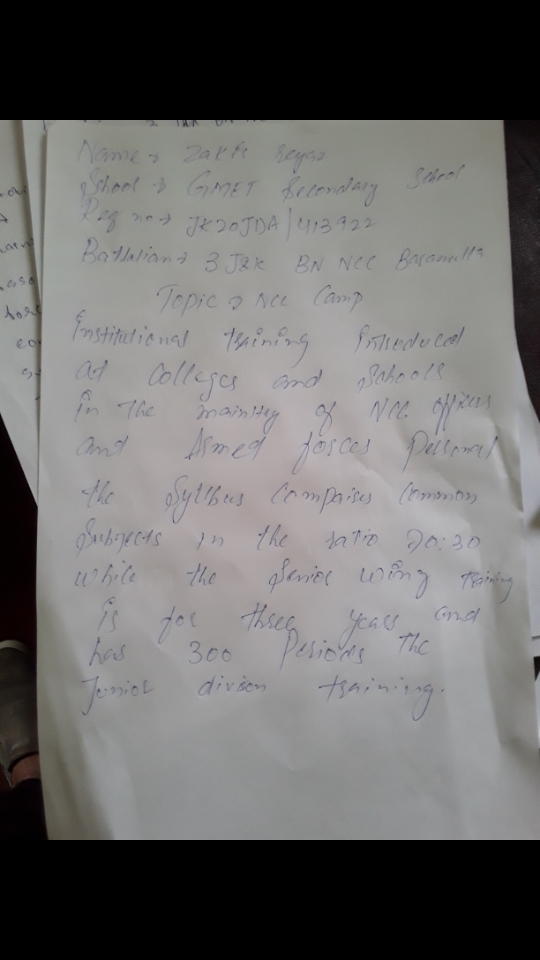 Name → Zakir Reyaz
School → GMET Secondary School
Reg no → JK20JDA/413922
Battalian → 3 J&K BN NCC Baramulla
Topic → NCC Camp
Institutional training Introduced
at Colleges and Schools
in the mainstry of NCC officers
and Armed forces Personal
the Syllbus Compaises Common
Subjects in the ratio 70:30
while the Senior wing training
is for three years and
has 300 Periods The
Junior divison training.